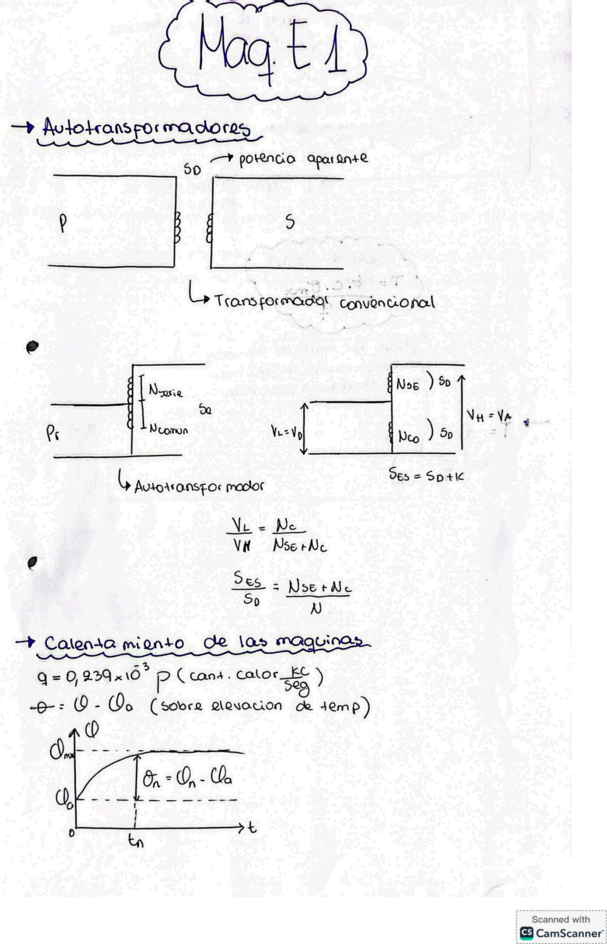 Maq. E 1
→ Autotransformadores
SD → potencia aparente
P
S
↳ Transformador convencional
Nserie
Ncomun
Pr
Sa
↳ Autotransformador
NSE ) SD
NCO ) SD
VL = VD
VH = VA
SES = SD + K
VL / VH = Nc / NSE + Nc
SES / SD = NSE + Nc / N
→ Calentamiento de las maquinas
q = 0,239 x 10⁻³ P (cant. calor KC/seg)
θ = φ - φa (sobre elevacion de temp)
φ
φm
φa
θn = φn - φa
0
tn
t
Scanned with
CS CamScanner